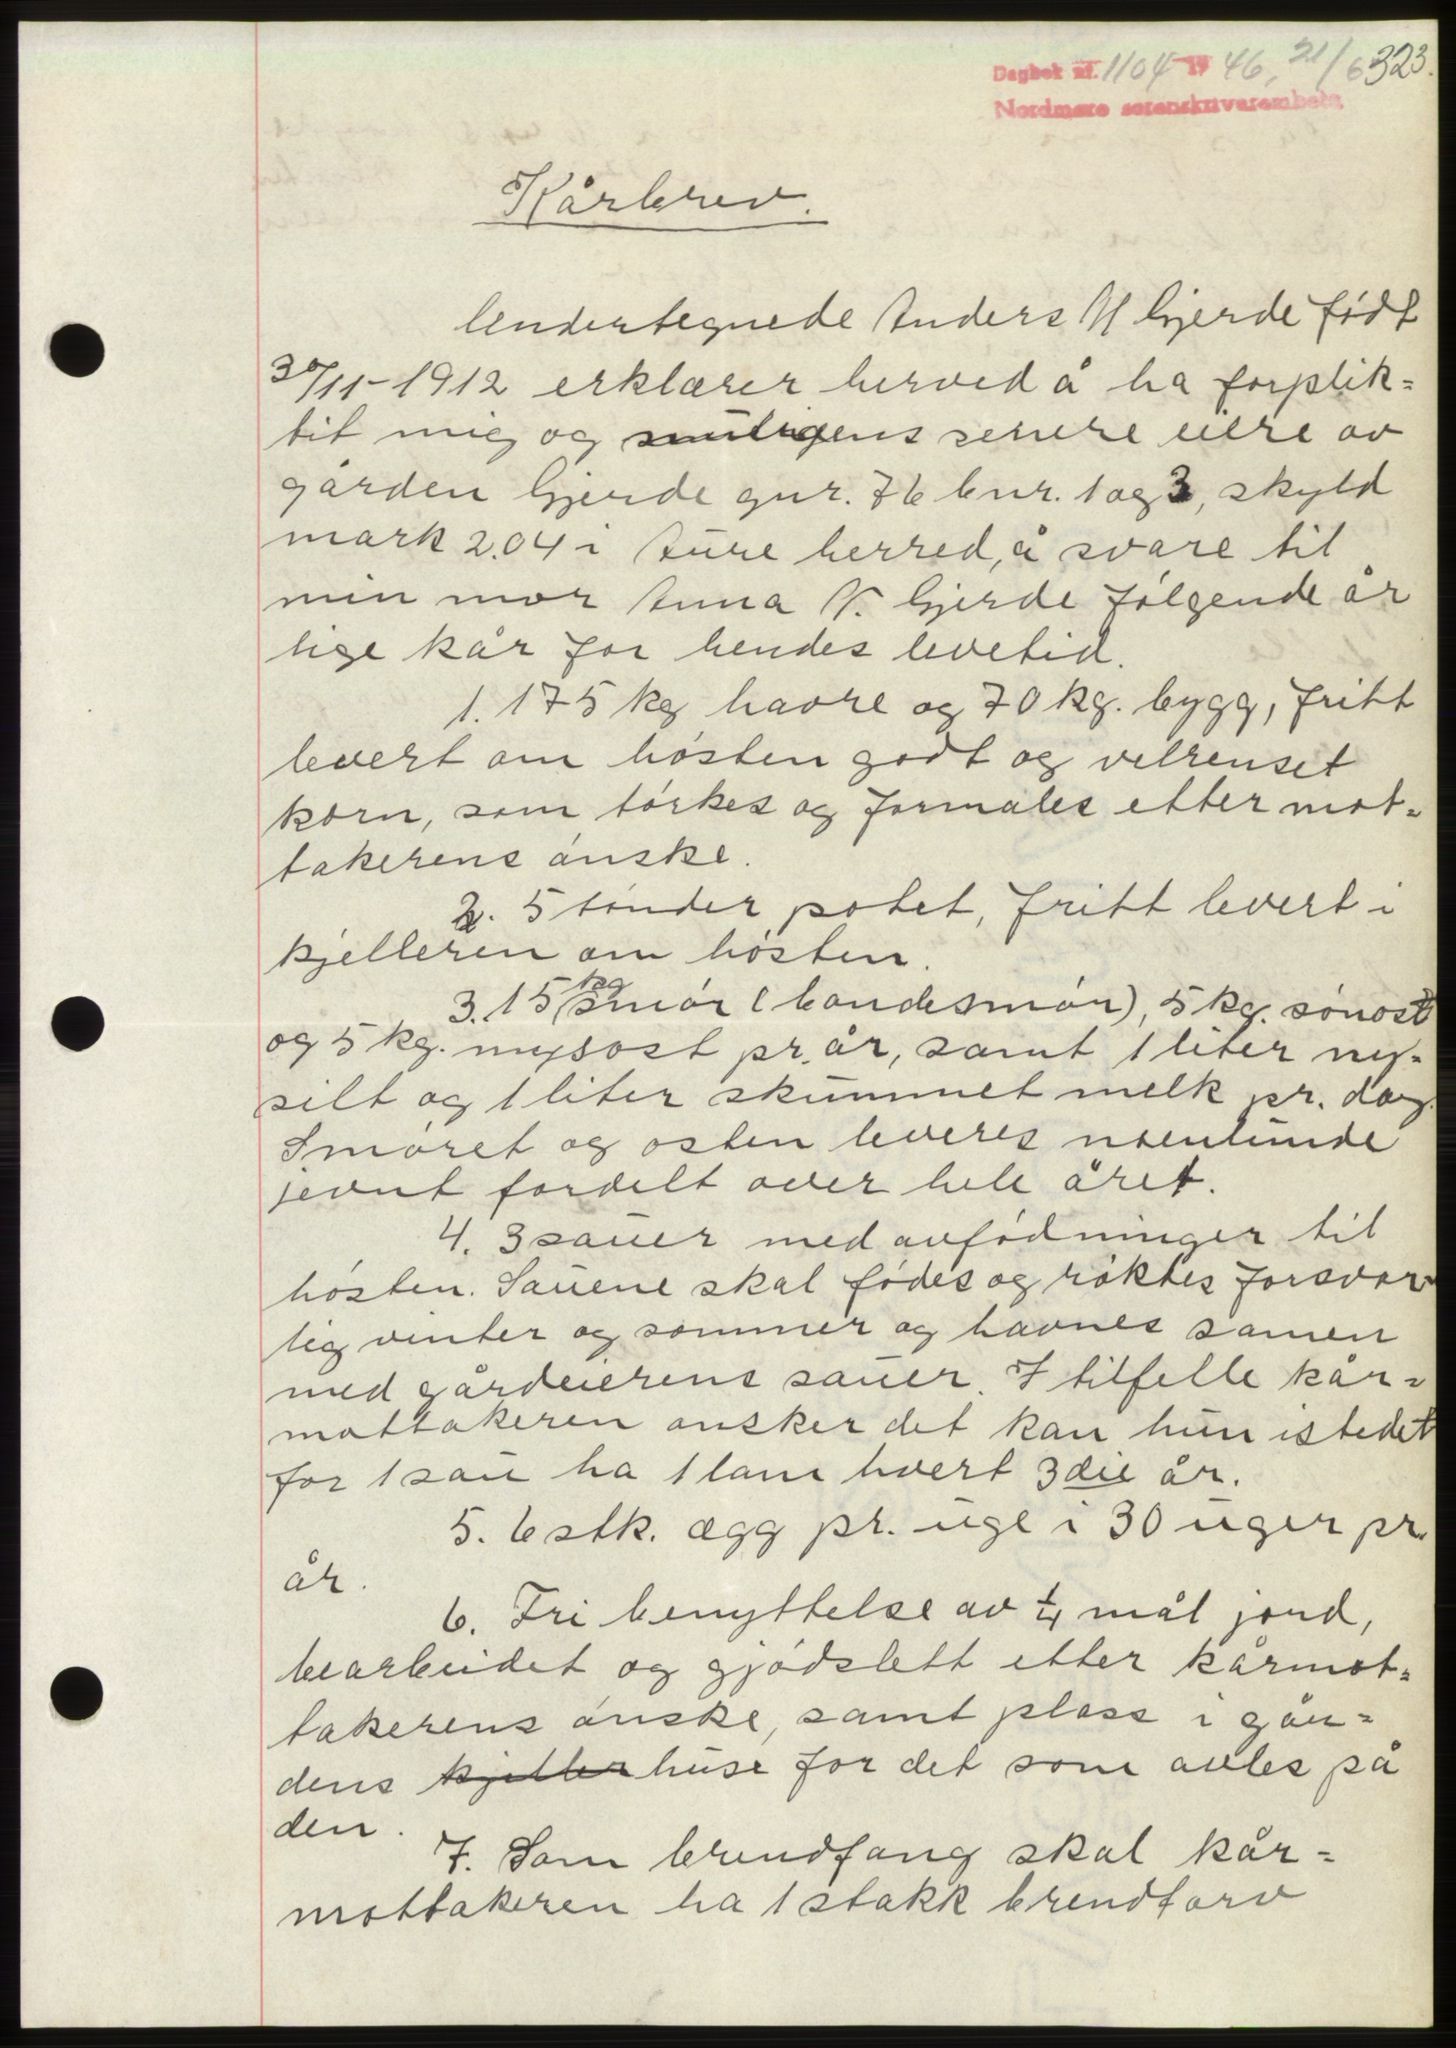 Dagbok nr. 1104 19 46, 21/6 323.
Nordmøre sorenskriverembete
Kårbrev.
Undertegnede Anders H Gjerde født
30/11-1912 erklærer herved å ha forplik=
tit mig og muligens senere eiere av
gården Gjerde gnr. 76 bnr. 1 og 3, skyld
mark 2.04 i Aure herred, å svare til
min mor Anna V. Gjerde følgende år
lige kår for hendes levetid.
1. 175 kg havre og 70 kg. bygg, fritt
levert om høsten godt og velrenset
korn, som tørkes og formales etter mot=
takerens ønske.
2. 5 tønder potet, fritt levert i
kjelleren om høsten.
3. 15 kg smør (bondesmør), 5 kg. sønost
og 5 kg. mysost pr. år, samt 1 liter ny=
silt og 1 liter skummet melk pr. dag.
Smøret og osten leveres noenlunde
jevnt fordelt over hele året.
4. 3 sauer med avfødninger til
høsten. Sauene skal fødes og røktes forsvar
lig vinter og sommer og havnes samen
med gårdeierens sauer. I tilfelle kår=
mottakeren ønsker det kan hun istedet
for 1 sau ha 1 lam hvert 3die år.
5. 6 stk. ægg pr. uge i 30 uger pr.
år.
6. Fri benyttelse av 1/4 mål jord,
bearbeidet og gjødslett etter kårmot=
takerens ønske, samt plass i går=
dens kjeller huse for det som avles på
den.
7. Som brendfang skal kår=
mottakeren ha 1 stakk brendtorv